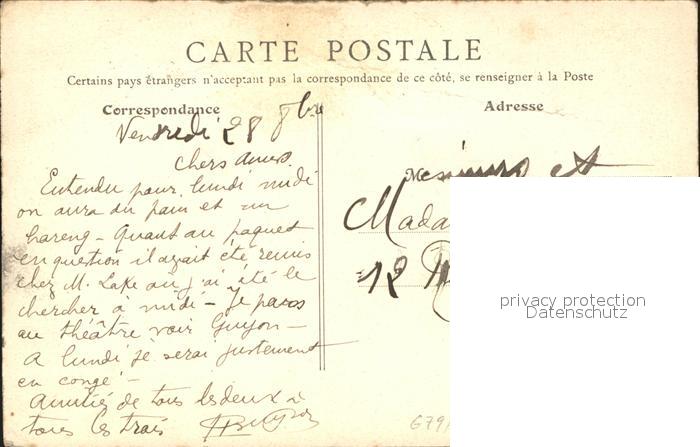 CARTE POSTALE
Certains pays étrangers n'acceptant pas la correspondance de ce côté, se renseigner à la Poste
Correspondance
Adresse
Vendredi 28 8bre
Chers amis
Entendu pour lundi midi
on aura du pain et un
hareng - Quant au paquet
en question il avait été remis
chez M. Lake où j'ai été le
chercher à midi - Je passe
au théâtre voir Guyon -
A lundi je serai justement
en congé -
Amitiés de tous les deux à
tous les trois
Messieurs et
Mada
12
679/
privacy protection
Datenschutz